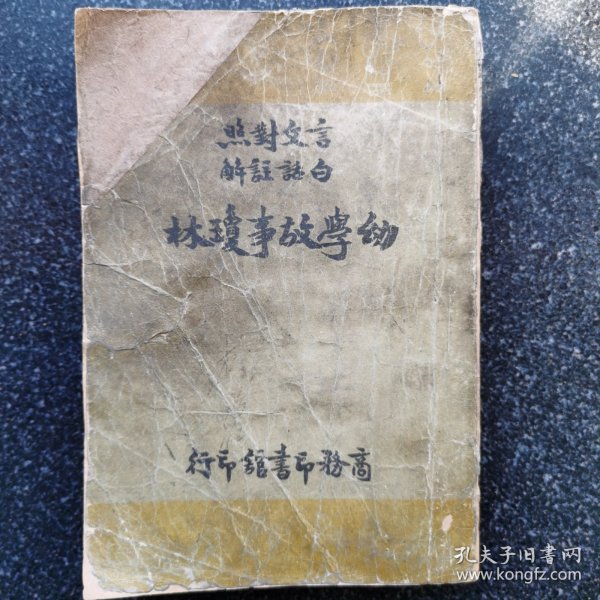 言文對照
白話註解
幼學故事瓊林
商務印書館印行
孔夫子旧书网
www.kongfz.com